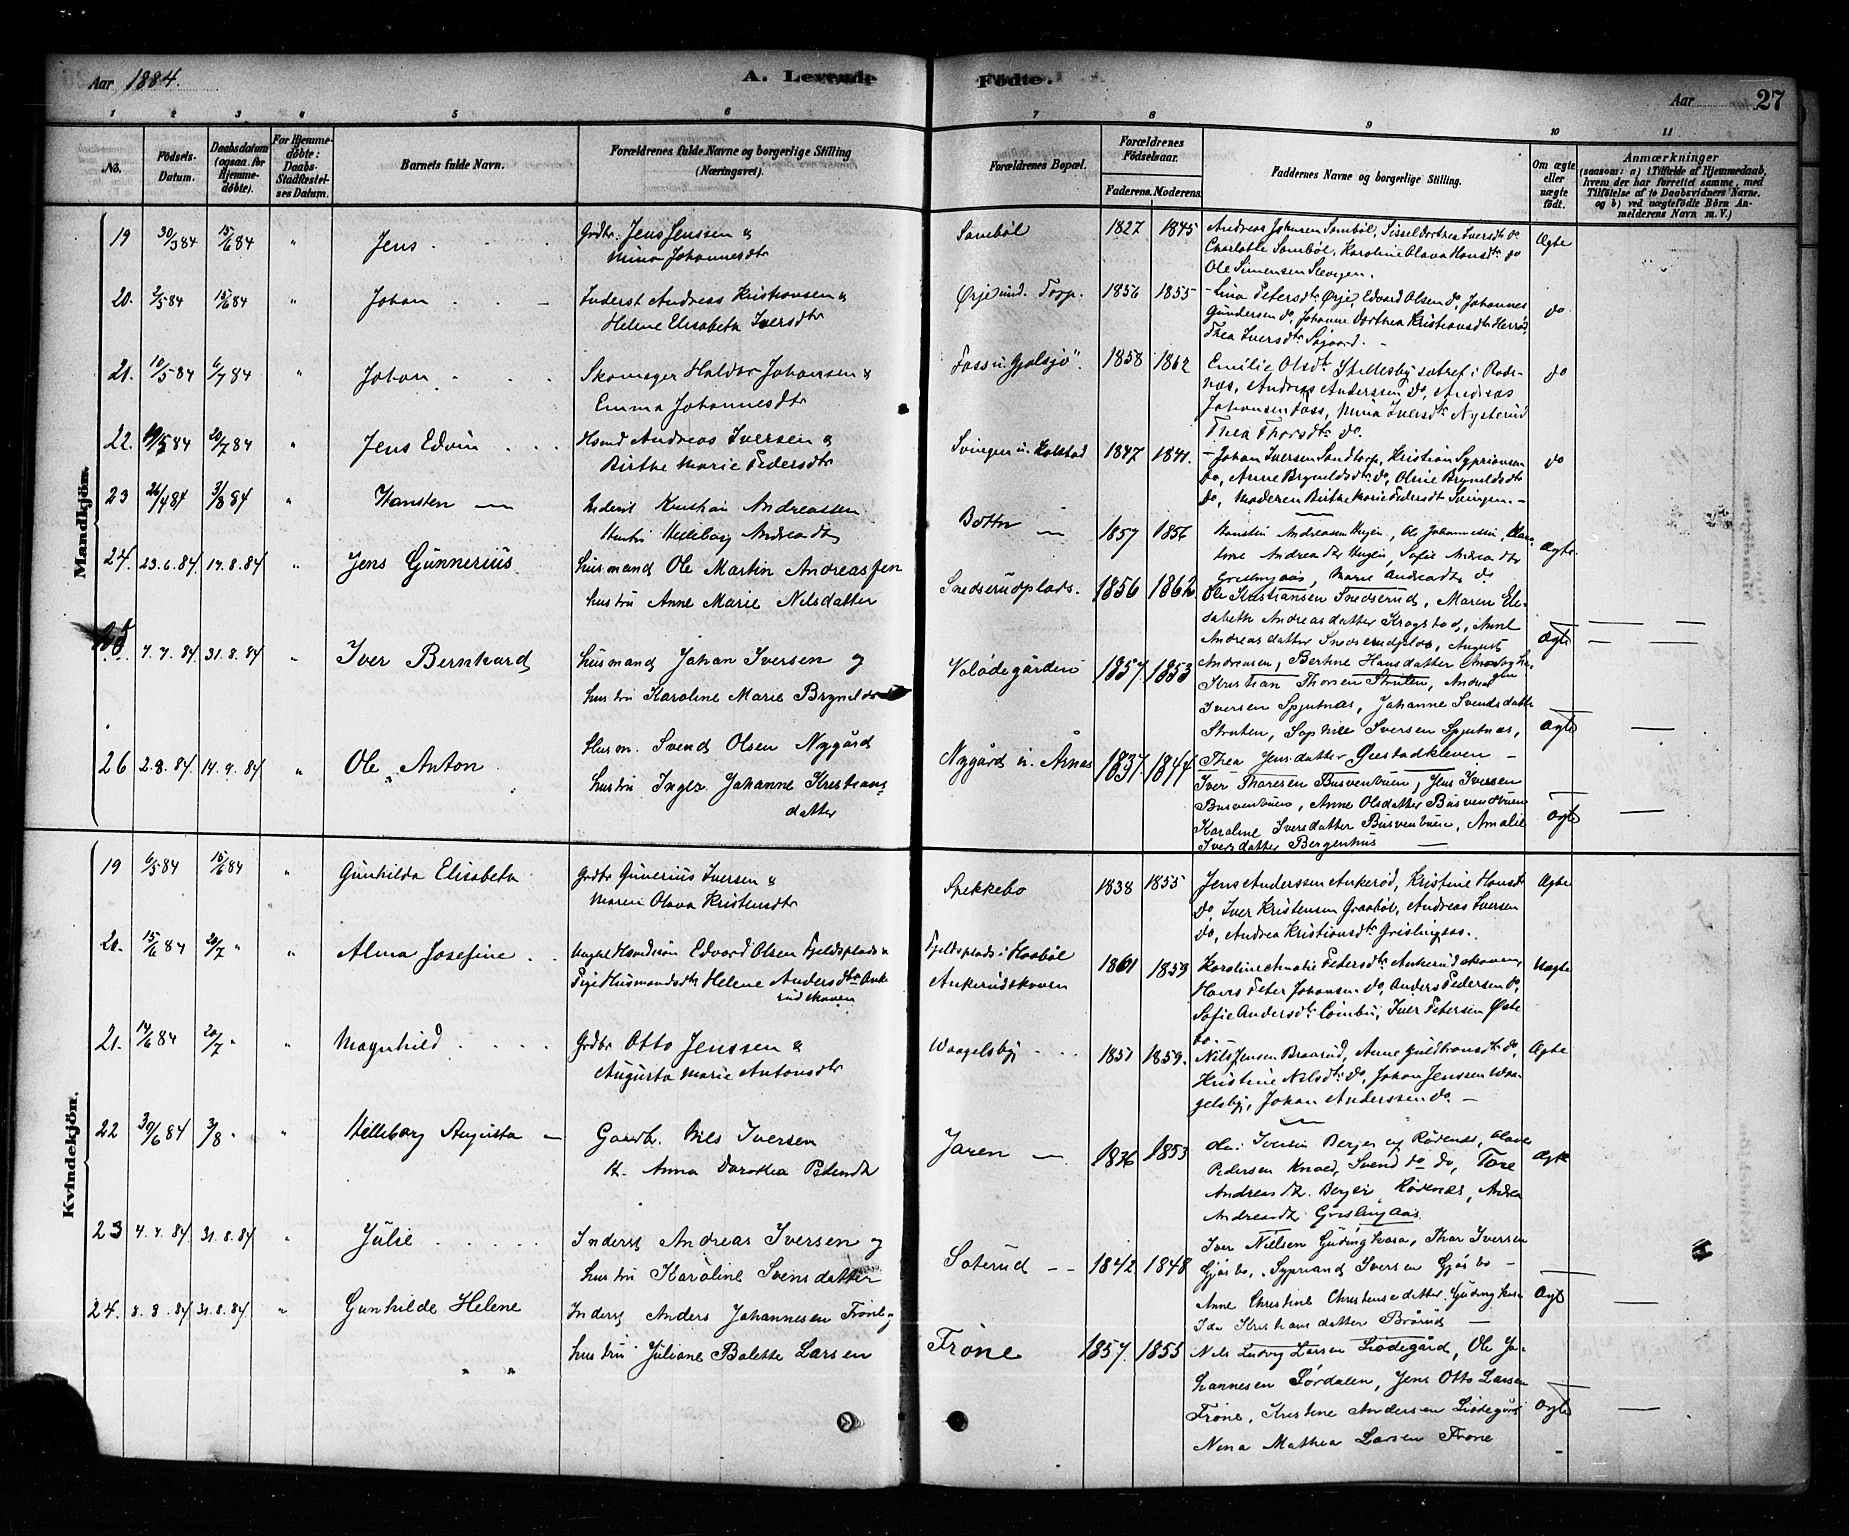 Aar 1884.
A. Levende Födte.
Aar 27
1 2 3 4 5 6 7 8 9 10 11
No.
Födsels-
Datum.
Daabsdatum
(ogsaa for
Hjemme-
döbte).
For Hjemme-
döbte:
Daabs-
Stadfæstel-
ses Datum.
Barnets fulde Navn.
Forældrenes fulde Navne og borgerlige Stilling
(Næringsvei).
Forældrenes Bopæl.
Forældrenes
Födselsaar.
Faderens. Moderens.
Faddernes Navne og borgerlige Stilling.
Om ægte
eller
uægte
födt.
Anmærkninger
(saasom: a) i Tilfælde af Hjemmedaab,
hvem der har forrettet samme, med
Tilföielse af to Daabsvidners Navne.
og b) ved uægtefödte Börn An-
melderens Navn m. V.)
Mandkjön.
19 30/3 84 15/6 84 " Jens
Grdbr. Jens Jenssen &
Mina Johannesdtr
Sambøl 1827 1845
Andreas Johnsen Sambøl, Sissel Dorthea Iversdtr do
Charlotte Sambøl, Karoline Olava Hansdtr do
Ole Simensen
Ægte
20. 2/5 84 15/6 84 " Johan
Inderst Andreas Kristiansen &
Helene Elisabeth Iversdtr
Ørje und. Torp. 1856 1855
Lina Petersdtr Ørje, Edvard Olsen do, Johannes
Gundersen do, Johanne Dorthea Kristiansdtr
Thea Iversdtr
do
21. 10/5 84 6/7 84 " Johan
Skomager Halvor Johansen &
Emma Johannesdtr
Foss u. Gjølsjø" 1858 1862
Emilie Olsdtr i Røde-
næs, Andreas Anderssen do, Andreas
Johansen Foss, Mina Iversdtr Nysterud
Thea Thorsdtr do.
do
22. 19/5 84 20/7 84 " Jens Edvin
Hsmd Andreas Iversen &
Birthe Marie Pedersdtr
Svingen u. Kolstad 1847 1841.
Johan Iversen Sandtorp, Kristian Syprionsen
do, Anne Bryneldsdtr do, Oline Bryneldsdtr
do, Moderen Birthe Marie Pedersdt Svingen.
do
23 26/4 84 3/8 84 " Hansten
Inderst Kristian Andreassen
Hustru Helleborg Andreadtr
Botten 1857 1856
Andreasen Ole Johannessen,
Andreadtr Sofie Andreadtr
Grislingaas, Marie Andreadtr do
Ægte
24. 23.6.84 17.8.84 " Jens Gunnerius
husmand Ole Martin Andreassen
hustru Anne Marie Nilsdatter
Snedserudplads. 1856 1862
Ole Kristiansen Snedserud, Maren Eli-
sabeth Andreasdatter Krogstad, Anne
Andreasdatter Snedserudplds, August
Andreasen, Berthe Hansdatter
Ægte
25 7.7.84 31.8.84 " Iver Bernhard
husmand Johan Iversen og
hustru Karoline Marie Brynelds
Volødegården 1857 1853
Kristian Thorsen Struten, Andreas
Iversen Spjutnæs, Johanne Svendsdatter
Struten, Sophie Iversen Spjutnæs,
Thea Jensdatter
Ægte
26 2.8.84 14.9.84 " Ole Anton
Husm. Svend Olsen Nygård
hustru Inger Johanne Kristians
datter
Nygård u. Årnæs 1837 1844
Iver Thoresen Busvenbuen, Jens Iversen
Busvenbuen, Anne Olsdatter Busvenbuen
Karoline Iversdatter Busvenbuen, Amalie
Iversdatter Bergenhus
Ægte
Kvindekjön.
19 6/5 84 15/6 84 " Gunhilda Elisabeth
Grdbr Gunerius Iversen &
Maren Olava Kristensdtr
Spekkebo 1838 1855
Jens Anderssen Ankerød, Kristine Hansdtr
do, Iver Kristensen Graabøl, Andreas Iversen
do, Andrea Kristiansdtr Grislingaas.
Ægte
20. 15/6 84 20/7 " " Alma Josefine
Ungkl Handsøn Edvard Olsen Fjeldsplads &
Pige Husmandsdtr Helene Andersdtr Anke
rudskoven
Fjeldsplads i Haabøl
Ankerudskoven
1861 1859
Karoline Amalie Petersdtr Ankerudskoven,
Hans Peter Johansen do, Anders Pedersen do,
Sofie Andersdtr Iver Petersen
do.
Uægte
21. 14/6 84 20/7 " Magnhild
Grdbr Otto Jenssen &
Augusta Marie Antonsdtr
Waagelsby 1851 1859.
Nils Jensen Braarud, Anne Guldhansdtr do,
Kristine Nilsdtr do, Johan Jenssen Waa-
gelsby, Johan Anderssen do
Ægte
22 30/6 84 3/8 " " Helleborg Augusta
Gaardbr. Nils Iversen
H. Anna Dorothea Pedersdtr
Jaren 1836 1853
Iversen Berger og Rødenæs, Olava
Pedersen Knaed, Svend do do, Tore
Andreasdtr. Berger Rødenæs, Andrea
Andreasdtr. Grislingaas
Ægte
23 7.7.84 31.8.84 " Julie
Inderst Andreas Iversen og
hustru Karoline Svensdatter
Soterud 1842 1848
Iver Nielsen Thor Iversen
Gjøsbo, Sypriand Iversen Gjøsbo
Anne Christine Christensdatter
Ida Kristiansdatter Brørud
Ægte
24. 8.8.84 31.8.84 " Gunhilde Helene
Inderst Anders Johannesen Frøne og
hustru Juliane Bolette Larsen
" "
Frøne 1857. 1855
Nils Ludvig Larsen Liødegård, Ole Jo-
hannesen Sørdalen, Jens Otto Larsen
Frøne, Kristine Andersen Liødegård
Nina Mathea Larsen Frøne
Ægte